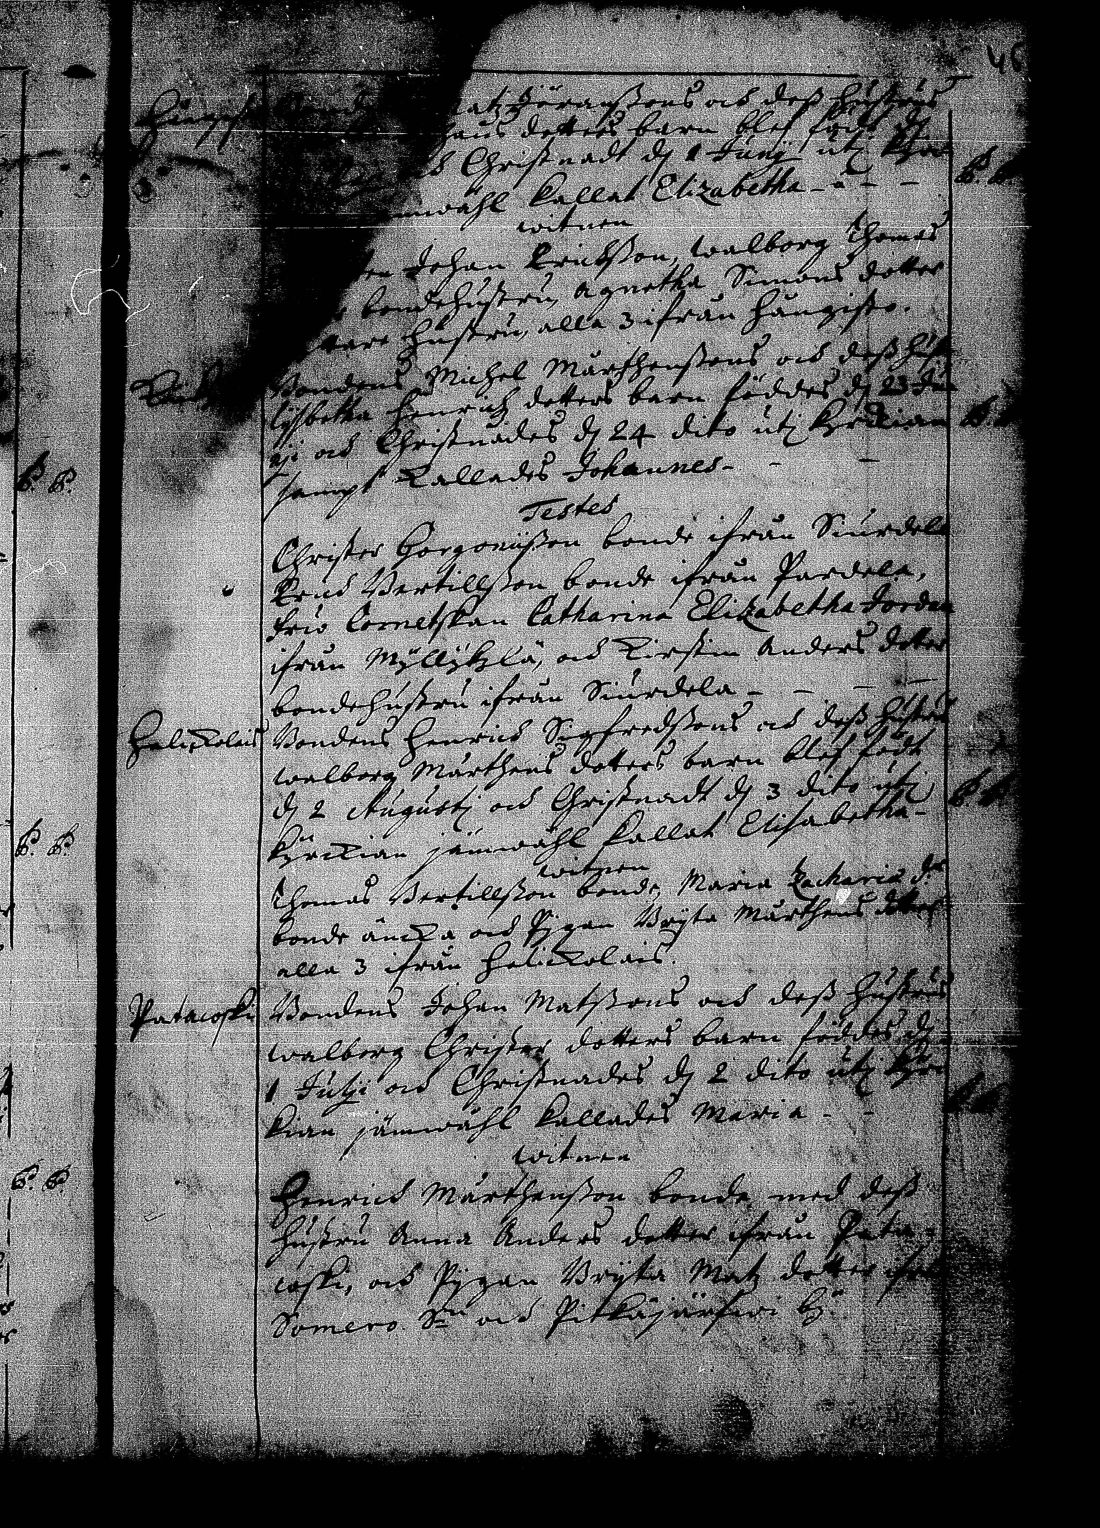 46
Matz Jöranßons och deß hustrus
dotters barn blef födt d
Christnadt dj 1 Junij uti Kyrc
jämwähl kallat Elizabetha - - -
witnen
Johan Erichßon, walborg Thomas
bondehustru, Agnetha Simons dotter
hustru, alla 3 ifrån Hängisto.
Bondens Michel Mårthenßons och deß hust
Lijsbetha Henrichz dotters barn föddes dj 23 Ju
och Christnades dj 24 dito uti kyrckian
sampt kallades Johannes - - -
Testes
Christer Gorgoniißon bonde ifrån Siurdela
Knut Bertillßon bonde ifrån Pardela,
frw Cornetskan Catharina Elizabetha Jordan
ifrån Myllykylä, och Kirstin Anders dotter
bondehustru ifrån Siurdela - - - -
Helickolais Bondens Henrich Sigfredßons och deß hustrus
walborg Mårthens dotters barn blef födt
dj 2 Augusti och Christnadt dj 3 dito uti
kyrckian jämwähl kallat Elisabetha -
witnen
Thomas Bertillßon bonde, Maria Zacharie dr
bonde änckia och Pigan Bryta Mårthens dotter
alla 3 ifrån Helickolais.
Patacoski Bondens Johan Matßons och deß hustrus
walborg Christers dotters barn föddes dj
1 Julij och Christnades dj 2 dito uti kyrc
kian jämwähl kallades Maria - -
witnen
Henrich Mårthenßon bonde med deß
hustru Anna Anders dotter ifrån Pata-
coski, och Pygan Bryta Matz dotter ifrån
Somero Sn och Pitkäjärfwi by.